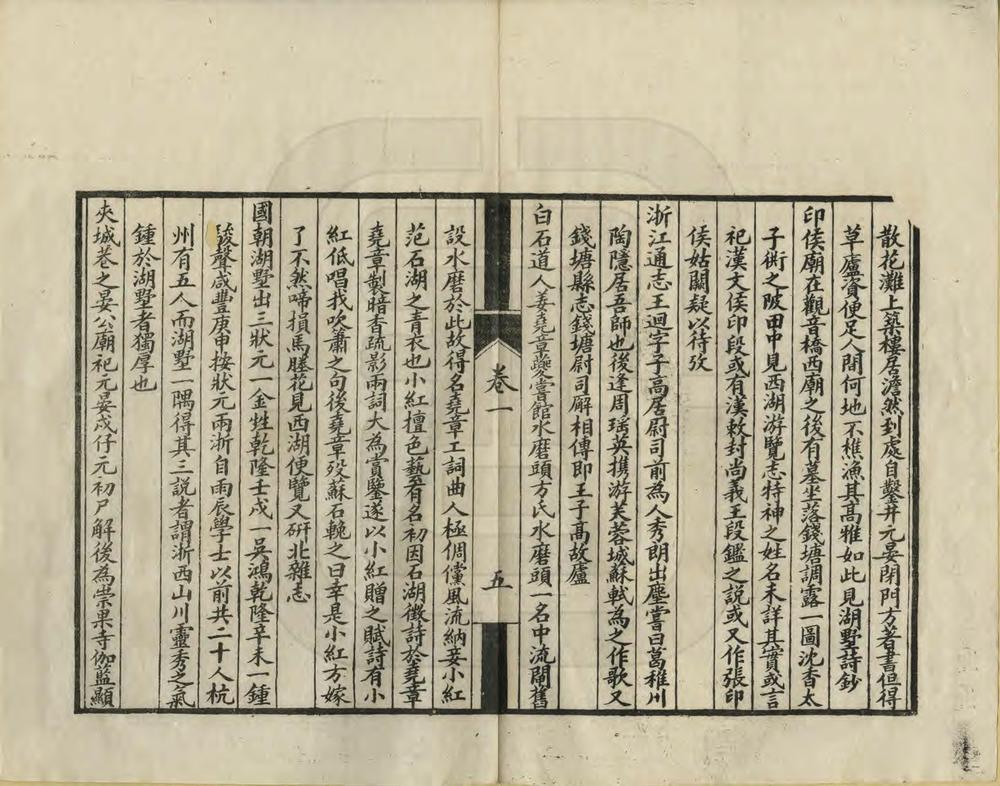 散花灘上築樓居澹然到處自鑿井元晏閉門方著書但得
草廬濟便足人間何地不樵漁其高雅如此見湖墅詩鈔
印侯廟在觀音橋西廟之後有墓坐落錢塘調露一圖沈香太
子衖之陂田中見西湖游覽志特神之姓名未詳其實或言
祀漢文侯印段或有漢敕封尚義王段鑑之説或又作張印
侯姑闕疑以待攷
浙江通志王迴字子高居尉司前為人秀朗出塵嘗曰葛稚川
陶隱居吾師也後逢周瑤英攜游芙蓉城蘇軾為之作歌又
錢塘縣志錢塘尉司廨相傳即王子高故廬
白石道人姜堯章夔嘗館水磨頭方氏水磨頭一名中流閘舊
卷一
五
設水磨於此故得名堯章工詞曲人極倜儻風流納妾小紅
范石湖之青衣也小紅擅色藝有名初因石湖徵詩於堯章
堯章製暗香疏影兩詞大為賞鑒遂以小紅贈之賦詩有小
紅低唱我吹簫之句後堯章歿蘇石輓之曰幸是小紅方嫁
了不然啼損馬塍花見西湖便覽又硏北雜志
國朝湖墅出三狀元一金甡乾隆壬戌一吳鴻乾隆辛未一鍾
駿聲咸豐庚申按狀元兩浙自雨辰學士以前共二十人杭
州有五人而湖墅一隅得其三説者謂浙西山川靈秀之氣
鍾於湖墅者獨厚也
夾城巷之晏公廟祀元晏戍仔元初尸解後為崇果寺伽藍顯